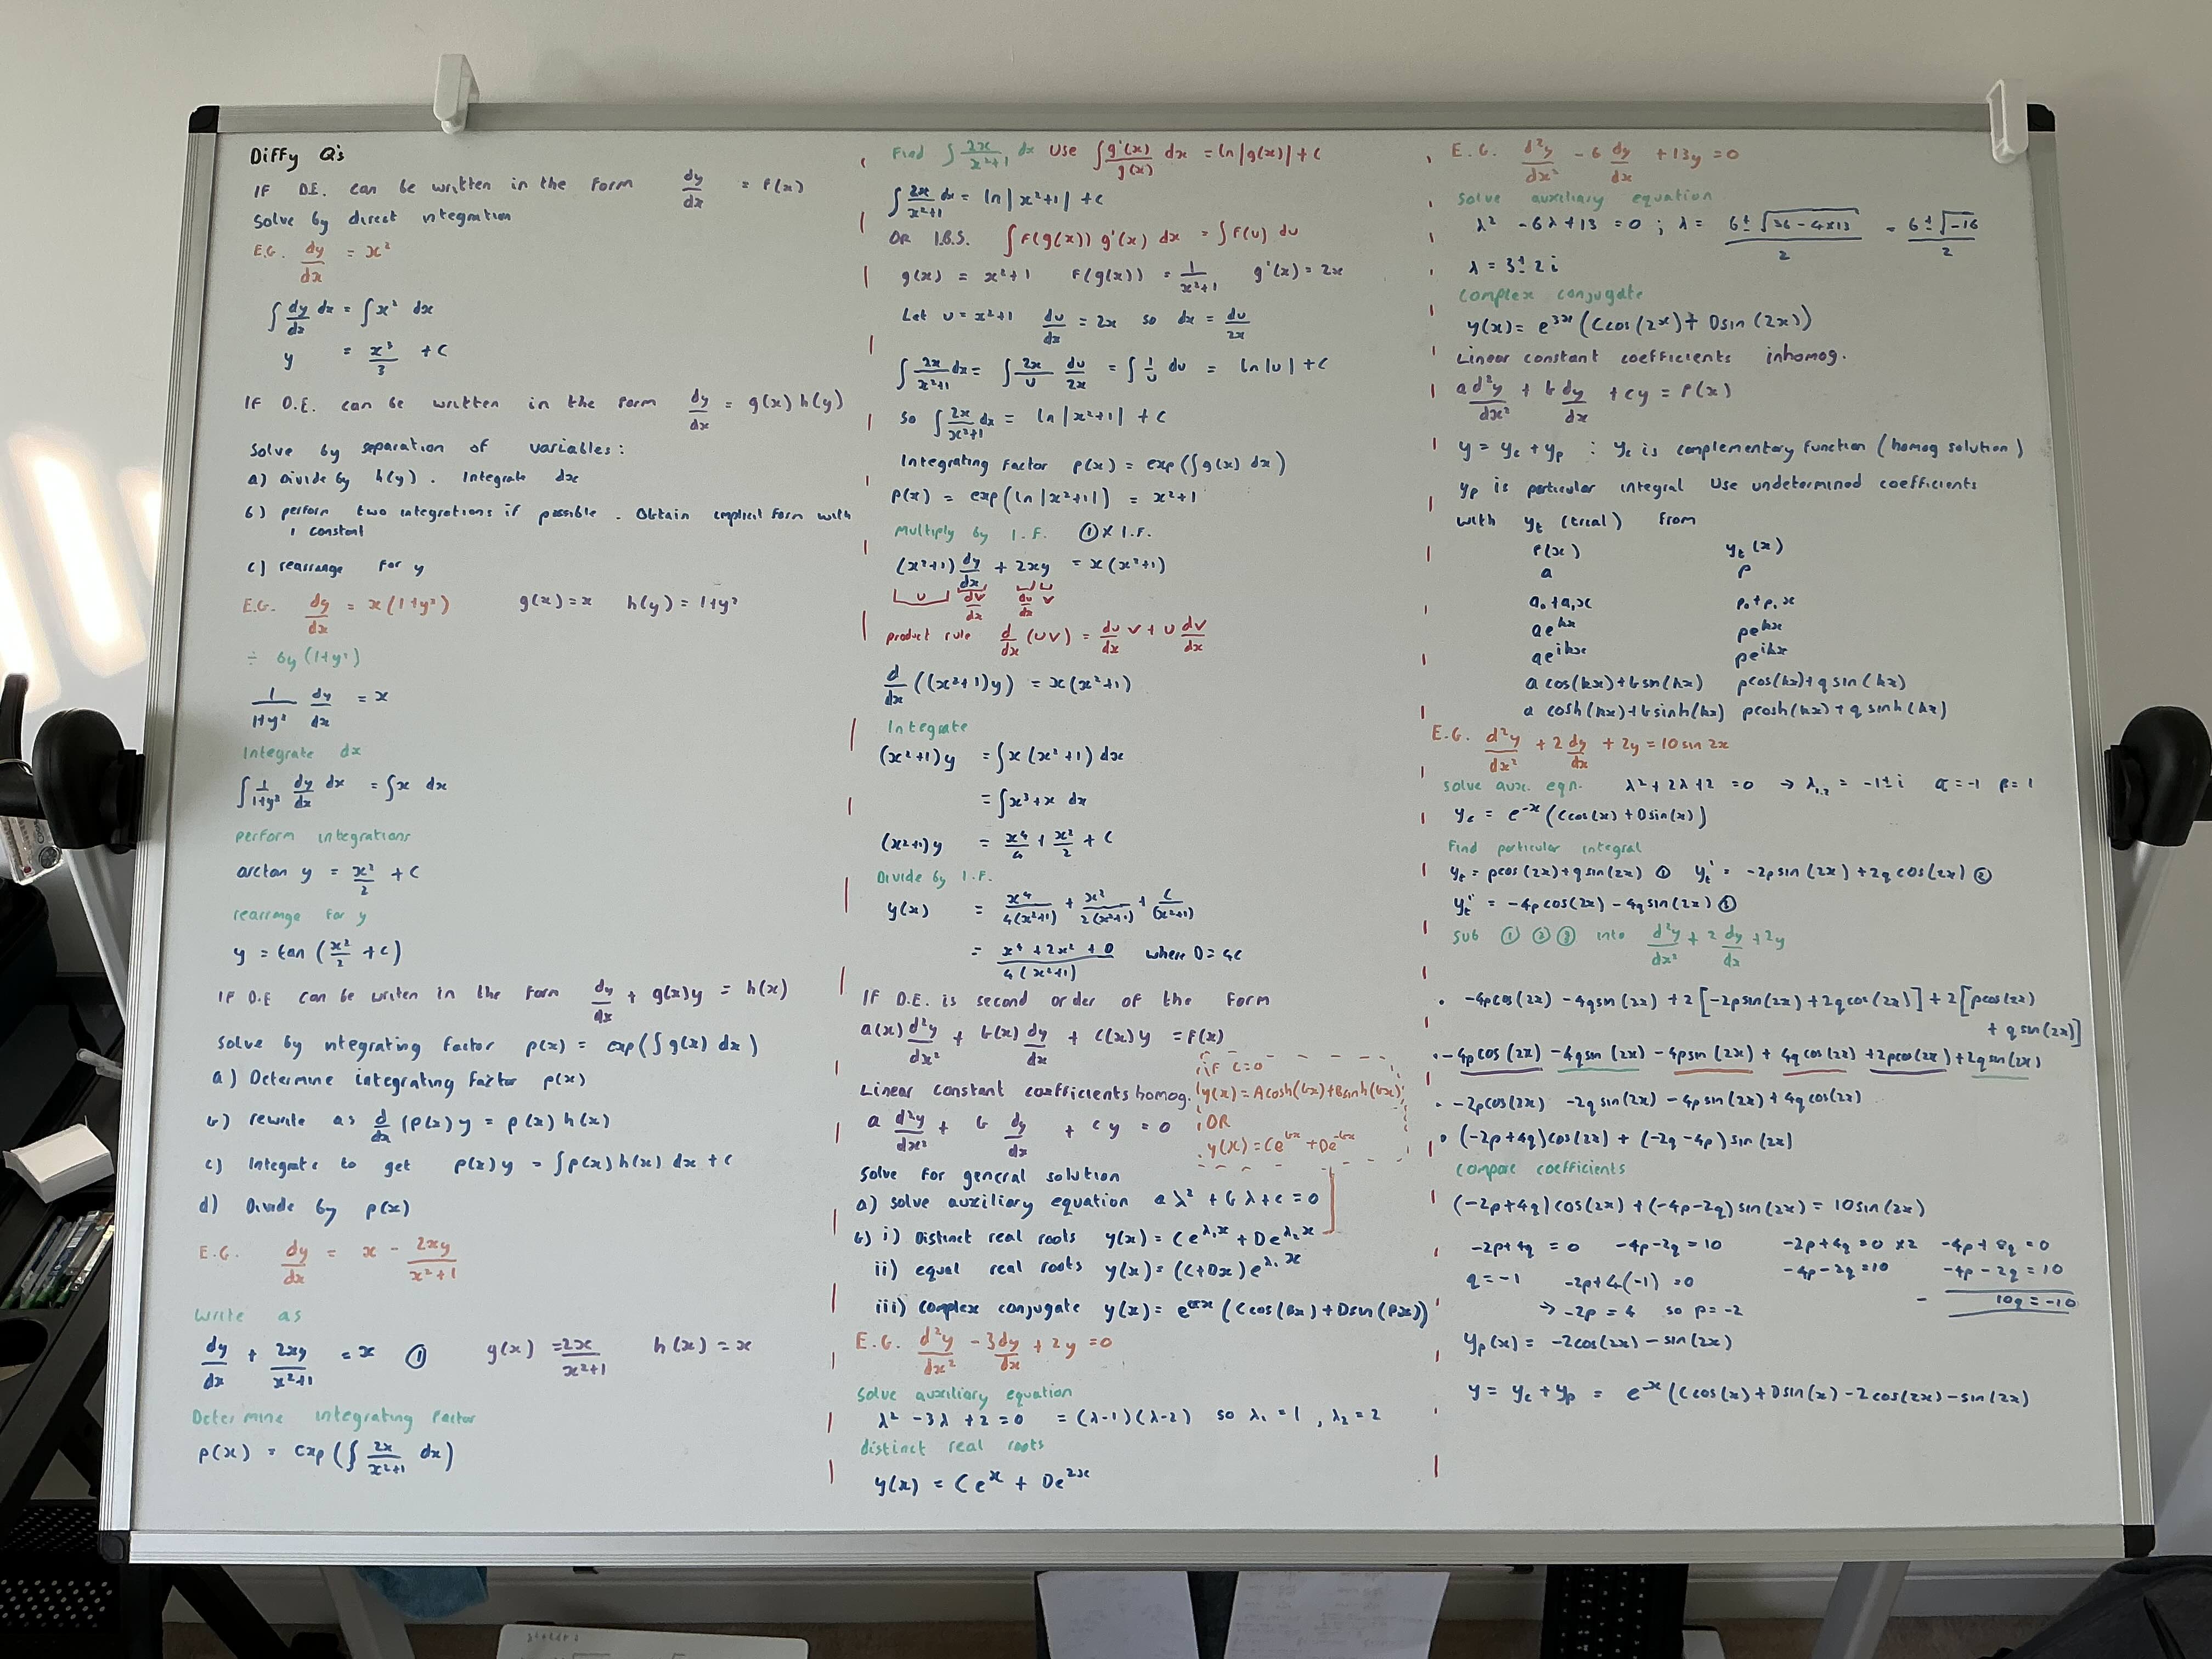 Diffy Q's
IF D.E. can be written in the form dy/dx = f(x)
Solve by direct integration
E.G. dy/dx = x²
∫ dy/dx dx = ∫ x² dx
y = x³/3 + C
IF D.E. can be written in the form dy/dx = g(x) h(y)
Solve by separation of variables:
a) Divide by h(y). Integrate dx
b) perform two integrations if possible. Obtain implicit form with
1 constant
c) rearrange for y
E.G. dy/dx = x(1+y²) g(x) = x h(y) = 1+y²
÷ by (1+y²)
1/(1+y²) dy/dx = x
Integrate dx
∫ 1/(1+y²) dy/dx dx = ∫ x dx
perform integrations
arctan y = x²/2 + C
rearrange for y
y = tan (x²/2 + C)
IF D.E can be writen in the form dy/dx + g(x)y = h(x)
Solve by integrating factor p(x) = exp(∫ g(x) dx)
a) Determine integrating factor p(x)
b) rewrite as d/dx (p(x) y = p(x) h(x)
c) Integrate to get p(x) y = ∫ p(x) h(x) dx + C
d) Divide by p(x)
E.G. dy/dx = x - 2xy/(x²+1)
Write as
dy/dx + 2xy/(x²+1) = x ① g(x) = 2x/(x²+1) h(x) = x
Determine integrating factor
p(x) = exp (∫ 2x/(x²+1) dx)
Find ∫ 2x/(x²+1) dx Use ∫ g'(x)/g(x) dx = ln|g(x)| + C
∫ 2x/(x²+1) dx = ln|x²+1| + C
OR I.B.S. ∫ f(g(x)) g'(x) dx = ∫ f(u) du
g(x) = x²+1 f(g(x)) = 1/(x²+1) g'(x) = 2x
Let u = x²+1 du/dx = 2x so dx = du/2x
∫ 2x/(x²+1) dx = ∫ 2x/u du/2x = ∫ 1/u du = ln|u| + C
So ∫ 2x/(x²+1) dx = ln|x²+1| + C
Integrating factor p(x) = exp(∫ g(x) dx)
p(x) = exp(ln|x²+1|) = x²+1
Multiply by I.F. ① x I.F.
(x²+1) dy/dx + 2xy = x(x²+1)
u dv/dx du/dx v
product rule d/dx (uv) = du/dx v + u dv/dx
d/dx ((x²+1)y) = x(x²+1)
Integrate
(x²+1)y = ∫ x(x²+1) dx
= ∫ x³+x dx
(x²+1)y = x⁴/4 + x²/2 + C
Divide by I.F.
y(x) = x⁴/4(x²+1) + x²/2(x²+1) + C/(x²+1)
= (x⁴ + 2x² + D)/4(x²+1) where D = 4C
IF D.E. is second order of the form
a(x) d²y/dx² + b(x) dy/dx + c(x) y = f(x)
Linear constant coefficients homog.
a d²y/dx² + b dy/dx + cy = 0
if c=0
y(x) = Acosh(bx)+Bsinh(bx)
OR
y(x) = Ce^bx + De^-bx
Solve for general solution
a) solve auxiliary equation aλ² + bλ + c = 0
b) i) Distinct real roots y(x) = Ce^λ₁x + De^λ₂x
ii) equal real roots y(x) = (C+Dx)e^λ₁x
iii) Complex conjugate y(x) = e^αx (Ccos(βx) + Dsin(βx))
E.G. d²y/dx² - 3dy/dx + 2y = 0
Solve auxiliary equation
λ² - 3λ + 2 = 0 = (λ-1)(λ-2) so λ₁ = 1, λ₂ = 2
distinct real roots
y(x) = Ce^x + De^2x
E.G. d²y/dx² - 6 dy/dx + 13y = 0
Solve auxiliary equation
λ² - 6λ + 13 = 0 ; λ = (6 ± √(36-4x13))/2 = (6 ± √-16)/2
λ = 3 ± 2i
Complex conjugate
y(x) = e^3x (Ccos(2x) + Dsin(2x))
Linear constant coefficients inhomog.
a d²y/dx² + b dy/dx + cy = f(x)
y = yc + yp : yc is complementary function (homog solution)
yp is particular integral Use undetermined coefficients
with yt (trial) from
f(x) yt(x)
a p
a₀+a₁x p₀+p₁x
ae^kx pe^kx
ae^ikx pe^ikx
a cos(kx)+bsin(kx) pcos(kx)+qsin(kx)
a cosh(kx)+bsinh(kx) pcosh(kx)+q sinh(kx)
E.G. d²y/dx² + 2dy/dx + 2y = 10 sin 2x
Solve aux. eqn. λ²+2λ+2 = 0 → λ₁,₂ = -1±i α=-1 β=1
yc = e^-x (Ccos(x) + Dsin(x))
Find particular integral
yt = pcos(2x)+qsin(2x) ① yt' = -2psin(2x)+2qcos(2x) ②
yt'' = -4pcos(2x) - 4qsin(2x) ③
Sub ① ② ③ into d²y/dx² + 2dy/dx + 2y
• -4pcos(2x) - 4qsin(2x) + 2[-2psin(2x) + 2qcos(2x)] + 2[pcos(2x)
+ qsin(2x)]
• -4pcos(2x) - 4qsin(2x) - 4psin(2x) + 4qcos(2x) + 2pcos(2x) + 2qsin(2x)
• -2pcos(2x) - 2qsin(2x) - 4psin(2x) + 4qcos(2x)
• (-2p+4q)cos(2x) + (-2q-4p)sin(2x)
Compare coefficients
(-2p+4q)cos(2x) + (-4p-2q)sin(2x) = 10sin(2x)
-2p+4q = 0 -4p-2q = 10 -2p+4q=0 x2 -4p+8q=0
q = -1 -2p+4(-1) = 0 -4p-2q=10 -4p-2q=10
→ -2p = 4 so p = -2 - 10q = -10
yp(x) = -2cos(2x) - sin(2x)
y = yc + yp = e^-x (Ccos(x) + Dsin(x) - 2cos(2x) - sin(2x)